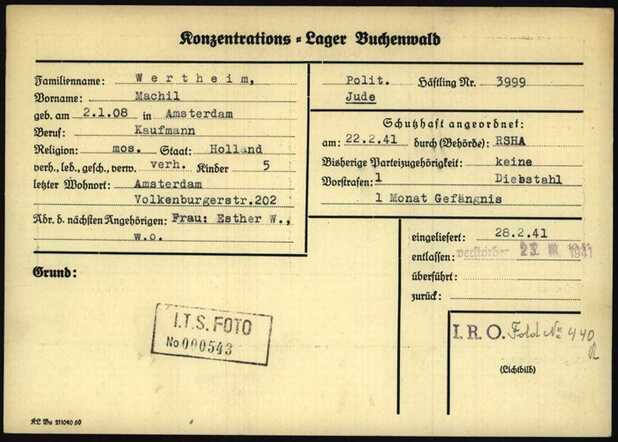 Konzentrations-Lager Buchenwald
Familienname: Wertheim,
Vorname: Machil
geb. am 2.1.08 in Amsterdam
Beruf: Kaufmann
Religion: mos. Staat: Holland
verh., led., gesch., verw. verh. Kinder 5
letzter Wohnort: Amsterdam
Volkenburgerstr.202
Adr. d. nächsten Angehörigen: Frau: Esther W.,
w.o.
Grund:
Polit. Häftling Nr. 3999
Jude
Schutzhaft angeordnet:
am: 22.2.41 durch (Behörde): RSHA
Bisherige Parteizugehörigkeit: keine
Vorstrafen: 1 Diebstahl
1 Monat Gefängnis
eingeliefert: 28.2.41
entlassen: verstorben 1941
überführt:
zurück:
I.T.S. FOTO
No 000543
I.R.O. Fold No 440
(Lichtbild)